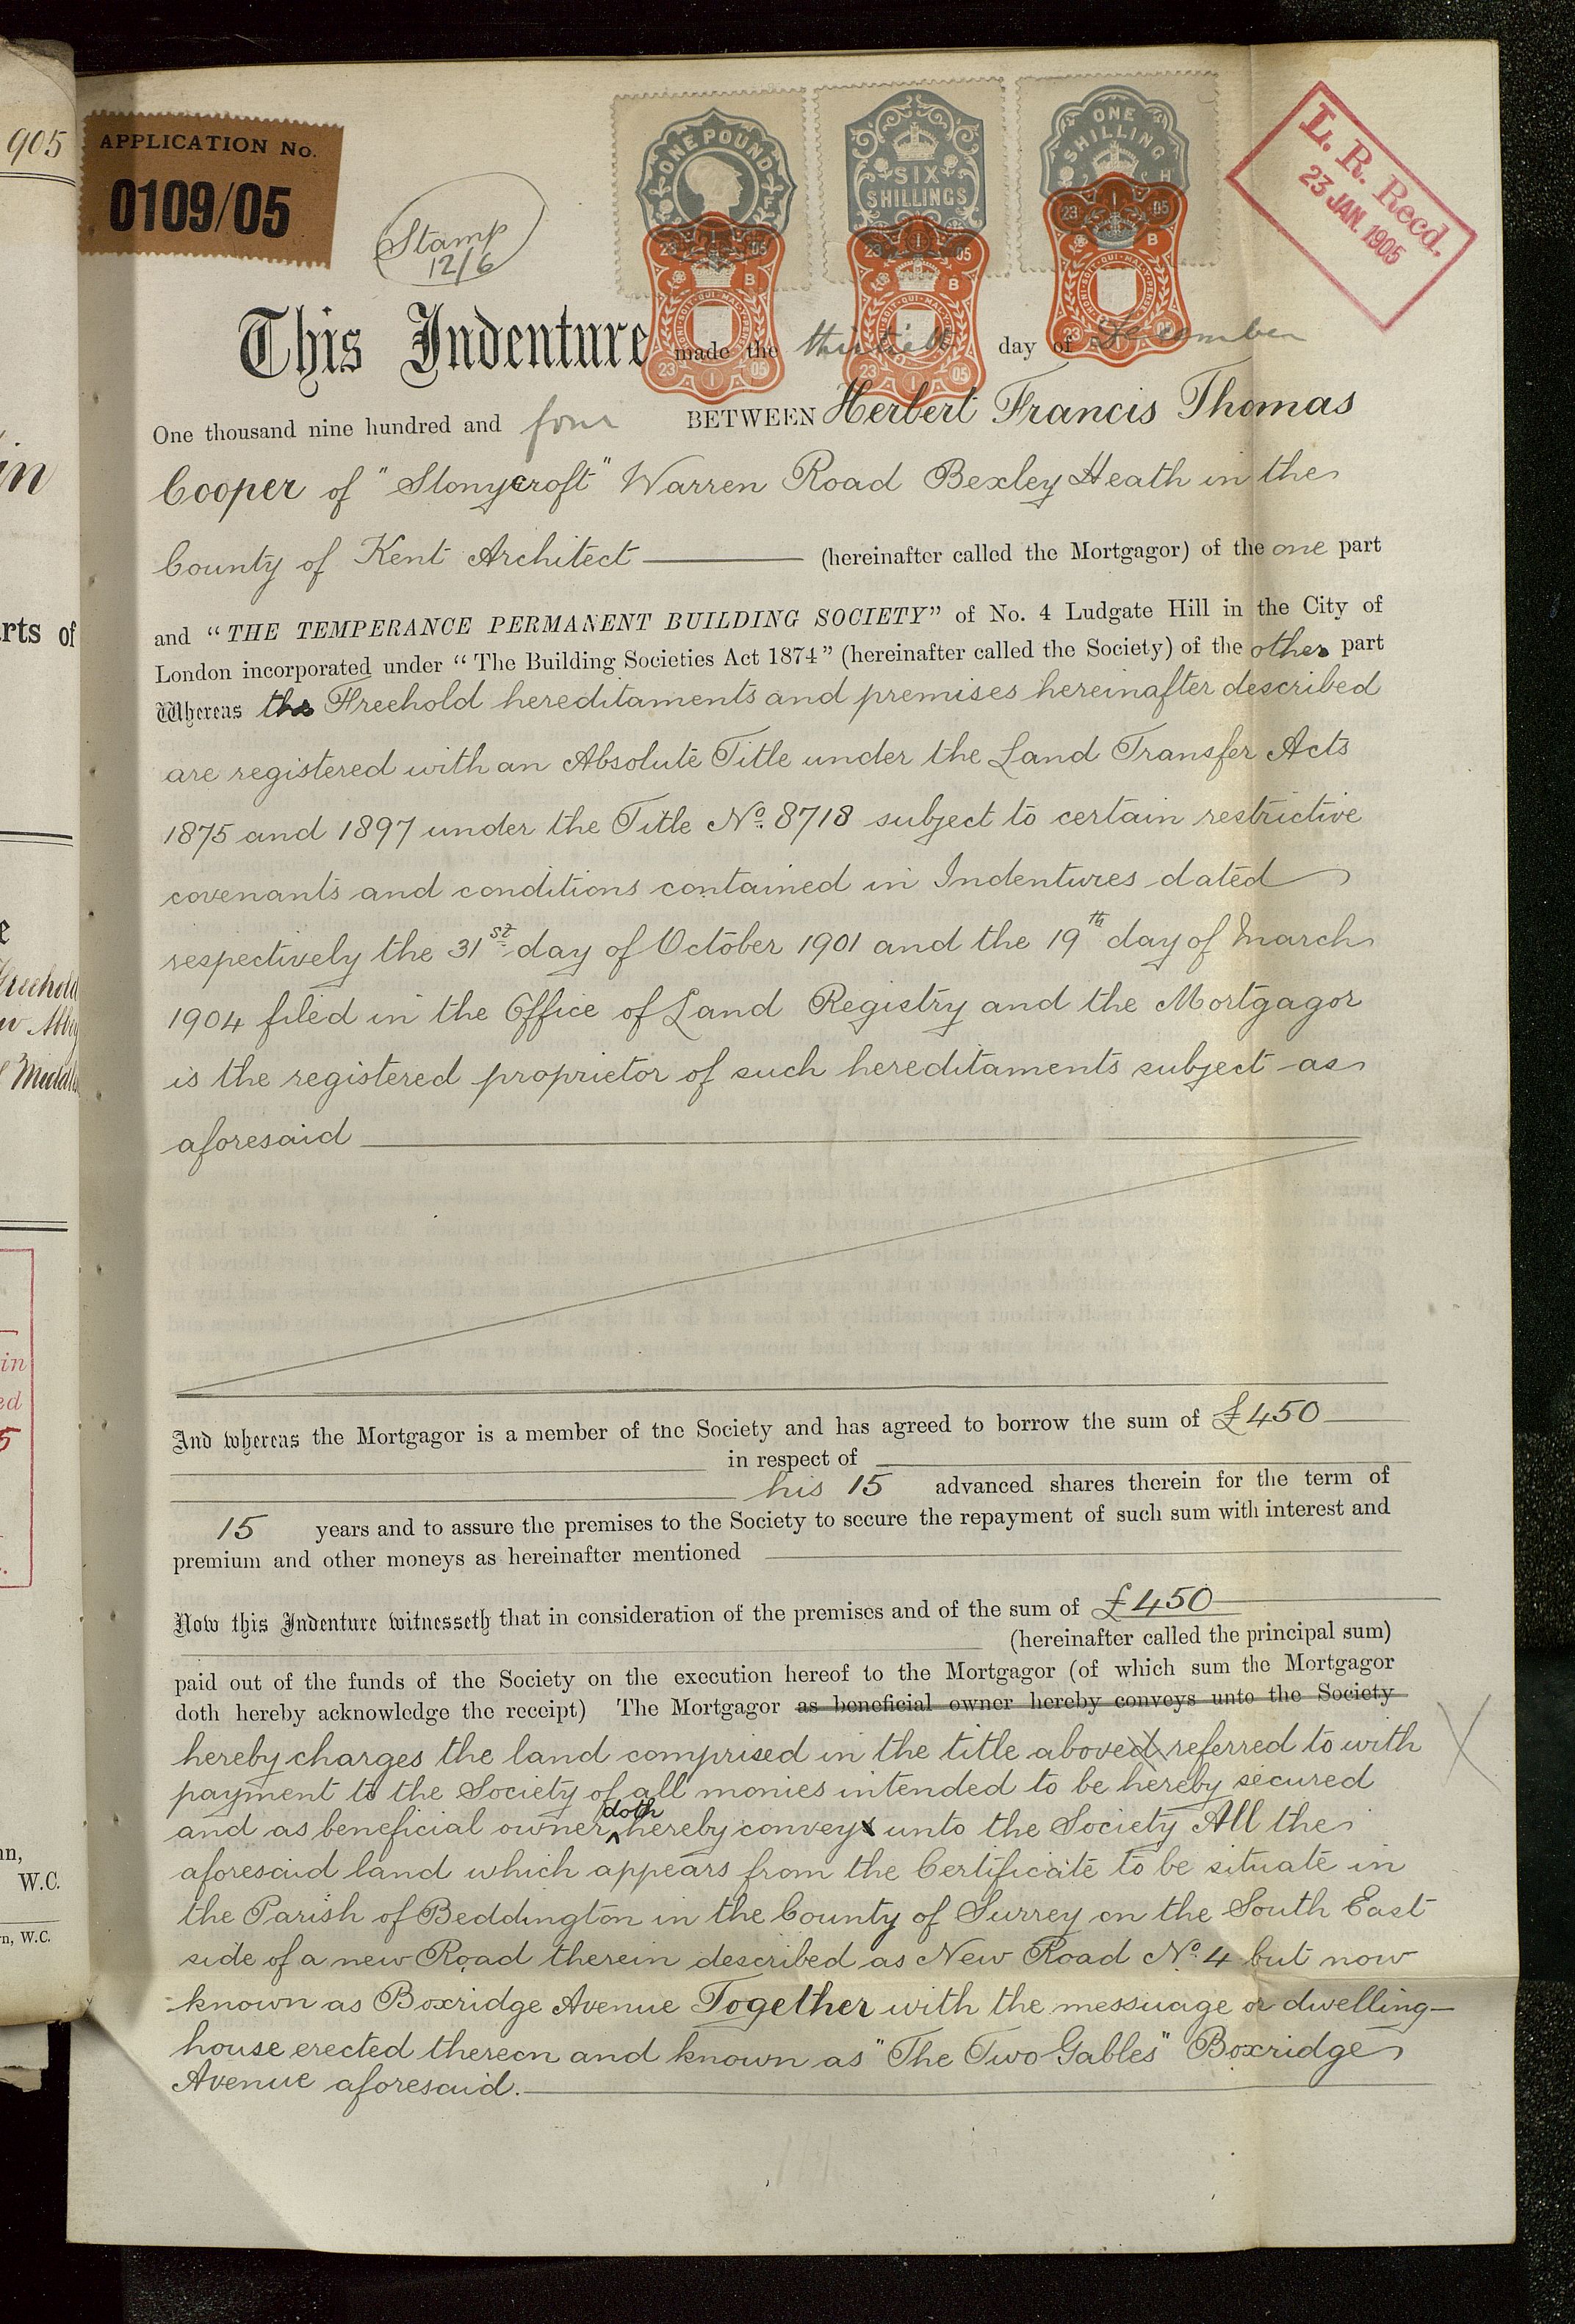 905
APPLICATION No.
0109/05
Stamp
12/6
ONE POUND
SIX
SHILLINGS
ONE
SHILLING
L. R. Recd.
23 JAN. 1905
This Indenture made the thirtieth day of December
One thousand nine hundred and four BETWEEN Herbert Francis Thomas
Cooper of "Stonycroft" Warren Road Bexley Heath in the
County of Kent Architect (hereinafter called the Mortgagor) of the one part
and "THE TEMPERANCE PERMANENT BUILDING SOCIETY" of No. 4 Ludgate Hill in the City of
London incorporated under "The Building Societies Act 1874" (hereinafter called the Society) of the other part
Whereas the Freehold hereditaments and premises hereinafter described
are registered with an Absolute Title under the Land Transfer Acts
1875 and 1897 under the Title No. 8718 subject to certain restrictive
covenants and conditions contained in Indentures dated
respectively the 31st day of October 1901 and the 19th day of March
1904 filed in the Office of Land Registry and the Mortgagor
is the registered proprietor of such hereditaments subject as
aforesaid
And whereas the Mortgagor is a member of the Society and has agreed to borrow the sum of £450
in respect of
his 15 advanced shares therein for the term of
15 years and to assure the premises to the Society to secure the repayment of such sum with interest and
premium and other moneys as hereinafter mentioned
Now this Indenture witnesseth that in consideration of the premises and of the sum of £450
(hereinafter called the principal sum)
paid out of the funds of the Society on the execution hereof to the Mortgagor (of which sum the Mortgagor
doth hereby acknowledge the receipt) The Mortgagor as beneficial owner hereby conveys unto the Society
hereby charges the land comprised in the title aboved referred to with
payment to the Society of all monies intended to be hereby secured
and as beneficial owner doth hereby conveys unto the Society All the
aforesaid land which appears from the Certificate to be situate in
the Parish of Beddington in the County of Surrey on the South East
side of a new Road therein described as New Road No. 4 but now
known as Boxridge Avenue Together with the messuage or dwelling-
house erected thereon and known as "The Two Gables" Boxridge
Avenue aforesaid.